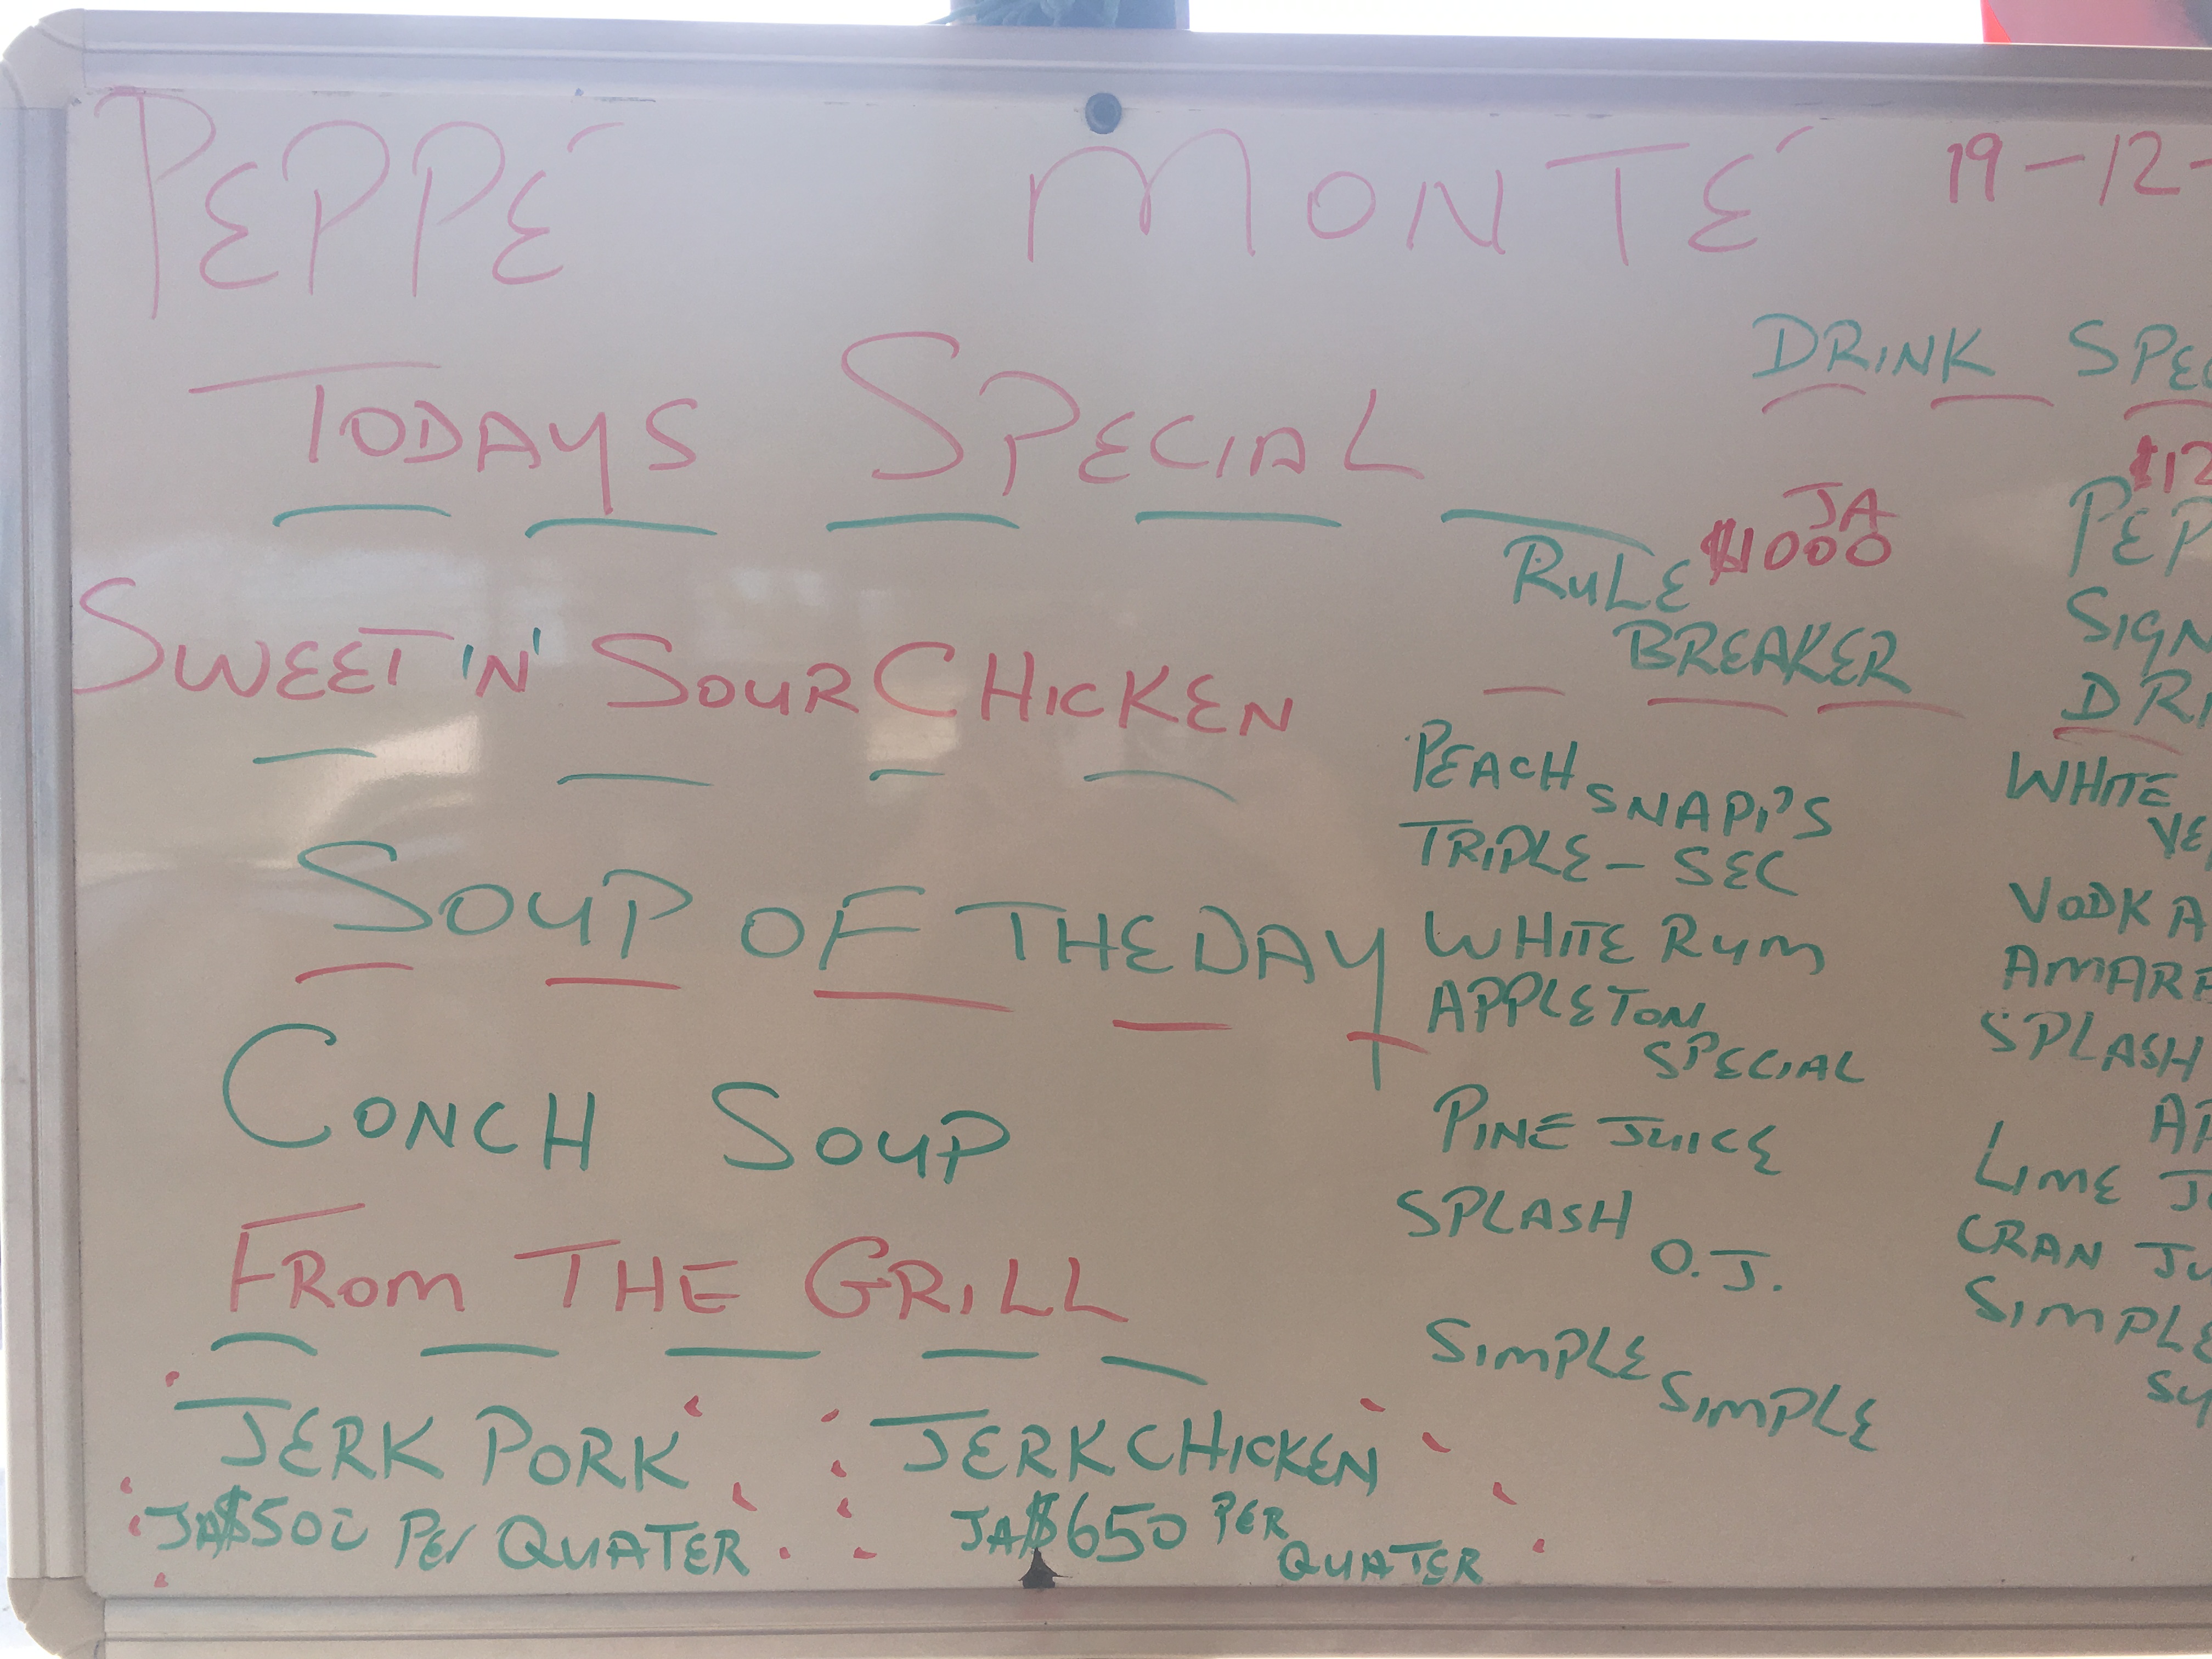 PEPPÉ MONTÉ 19-12-
TODAYS SPECIAL
SWEET 'N' SOUR CHICKEN
SOUP OF THE DAY
CONCH SOUP
FROM THE GRILL
JERK PORK
JA$500 PER QUATER
JERK CHICKEN
JA$650 PER
QUATER
DRINK SPEC
JA
$1000
RULE
BREAKER
PEACH
SNAPI'S
TRIPLE-SEC
WHITE RUM
APPLETON
SPECIAL
PINE JUICE
SPLASH
O.J.
SIMPLE
SIMPLE
$12
PEP
SIGN
DRI
WHITE
VE
VODKA
AMAR
SPLASH
AP
LIME J
CRAN JU
SIMPLE
SY